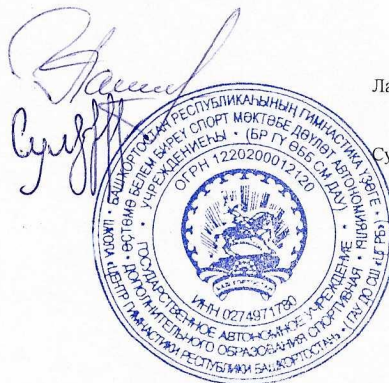 Ла
Су
БАШКОРТОСТАН РЕСПУБЛИКАҺЫНЫҢ ГИМНАСТИКА ҮЗӘГЕ
ӨҪТӘМӘ БЕЛЕМ БИРЕҮ СПОРТ МӘКТӘБЕ ДӘҮЛӘТ АВТОНОМИЯЛЫ
УЧРЕЖДЕНИЕҺЫ • (БР ГҮ ӨББ СМ ДАУ)
ОГРН 1220200012120
ИНН 0274971780
ГОСУДАРСТВЕННОЕ АВТОНОМНОЕ УЧРЕЖДЕНИЕ
ДОПОЛНИТЕЛЬНОГО ОБРАЗОВАНИЯ СПОРТИВНАЯ
ШКОЛА ЦЕНТР ГИМНАСТИКИ РЕСПУБЛИКИ БАШКОРТОСТАН • (ГАУ ДО СШ ЦГ РБ)